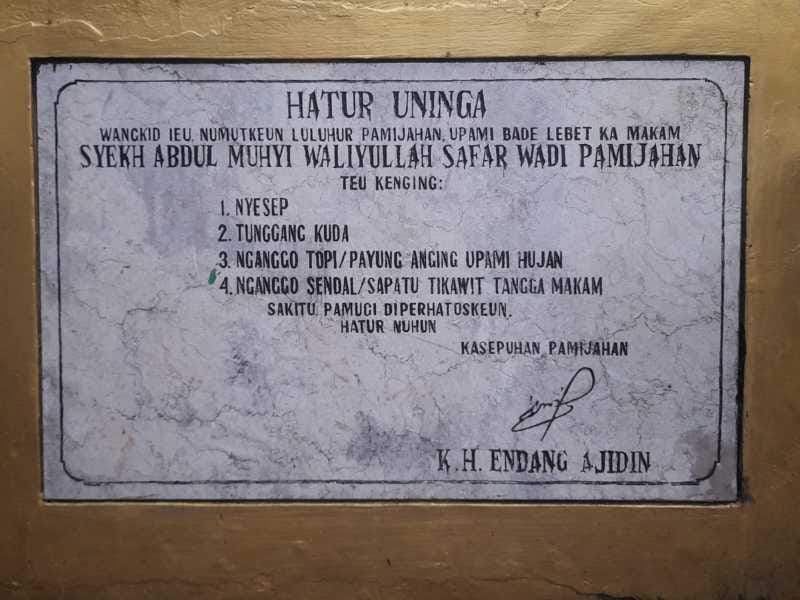 HATUR UNINGA
WANGKID IEU, NUMUTKEUN LULUHUR PAMIJAHAN, UPAMI BADE LEBET KA MAKAM
SYEKH ABDUL MUHYI WALIYULLAH SAFAR WADI PAMIJAHAN
TEU KENGING:
1. NYESEP
2. TUNGGANG KUDA
3. NGANGGO TOPI/PAYUNG ANGING UPAMI HUJAN
4. NGANGGO SENDAL/SAPATU TIKAWIT TANGGA MAKAM
SAKITU PAMUGI DIPERHATOSKEUN.
HATUR NUHUN
KASEPUHAN PAMIJAHAN
K.H. ENDANG AJIDIN